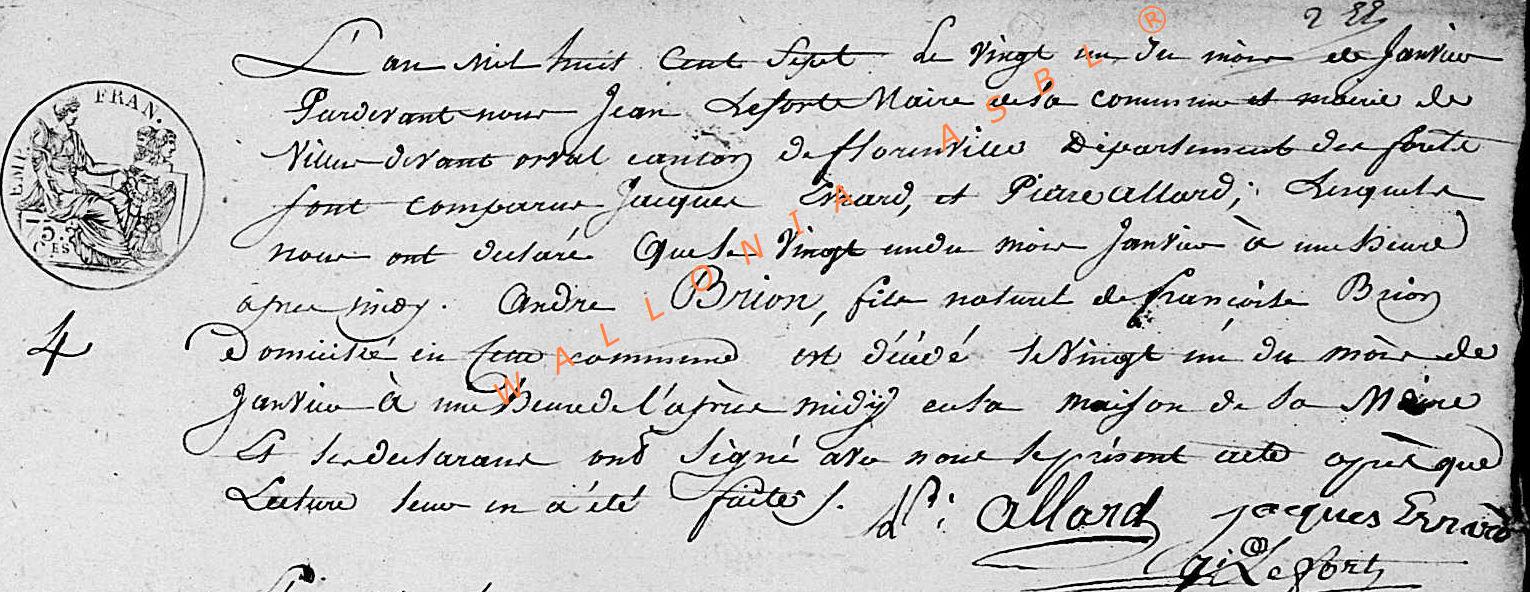 L'an mil huit Cent Sept Le Vingt un du mois de Janvier
Pardevant nous Jean Leforte Maire de la commune et mairie de
Villers devant orval canton de florenville Département des forets
sont comparus Jacques Errard, et Pierre allard, Lesquels
nous ont declaré Que le Vingt un du mois Janvier à une heure
apres midy. André Brion, fils naturel de francoise Brion
Domicilié en cette commune est décédé le Vingt un du mois de
Janvier à une heure de l'après midÿ en la maison de la Mère
Et les declarans ont Signé avec nous le présent acte après que
Lecture leur en a été faite.
allard jacques Errard
Lefort
4
EMP. FRAN.
75 CES
WALLONIA ASBL ®